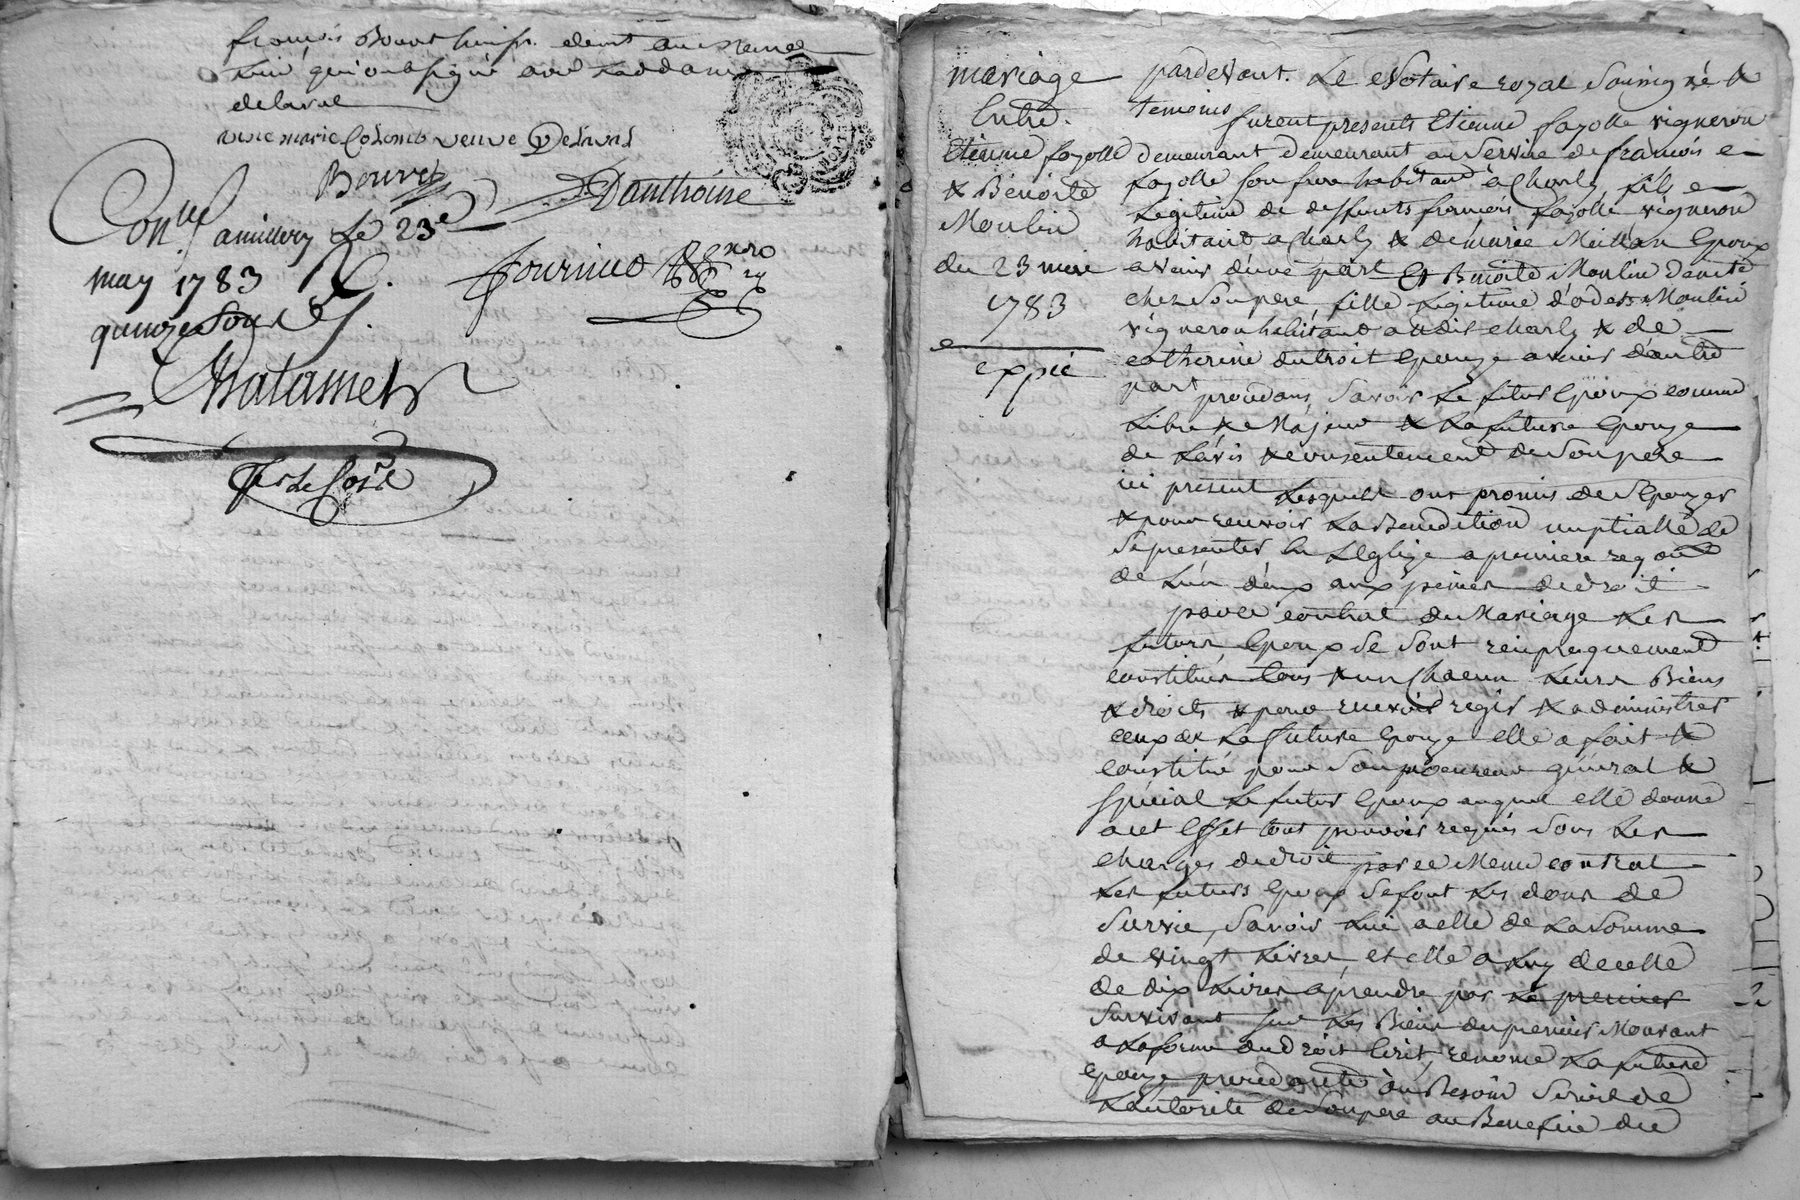 françois Bouvet
qui ont signé avec
delaval
anne marie Colomb veuve Delaval
Bouvet
Danthoine
Con.lé a millery le 23e
may 1783
quinze sous
Chatamet
mariage
Entre
Etienne fayolle
& Benoite
Moulin
du 23 mars
1783
expié
pardevant Le Notaire royal Soussigné &
temoins
furent presents Etienne fayolle vigneron
demeurant demeurant au Service de francois
fayolle son frere habitant a Charly, fils
Legitime de deffunts francois fayolle vigneron
habitant a Charly & de marie Epoux
avenir d'une part Et Benoite Moulin demte
chez Son pere, fille Legitime d'odet Moulin
vigneron habitant audit charly & de
catherine dutroit Epouze avenir d'autre
part
procedans, Savoir Le futur Epoux comme
Libre & Majeur & La future Epouze
de L'avis & consentement de Son pere
ici present Lesquels ont promis de S'Epouzer
& pour recevoir La Benediction nuptialle de
Se presenter En L'Eglize a premiere requi
de L'un d'eux aux peines de droit
pour contrat du Mariage Les
futurs Epoux Se Sont reciproquement
constitués tous & un Chacun Leurs Biens
& droits & pour recevoir regir & administrer
ceux de La future Epouze elle a fait &
constitué pour Son procureur général &
Spécial Le futur Epoux auquel elle donne
a cet Effet tous pouvoirs requis Sous Les
charges de droit par ce Meme contrat
Les futurs Epoux Se font Les dons de
Survie, Savoir Lui a elle de La Somme
de vingt Livres, et elle a Luy de celle
de dix Livres a prendre par Le premier
Survivant Sur Les Biens du premier Mourant
a La forme du droit Ecrit, La future
Epouze procedante au Besoin de
L'autorité de Son pere au Benefice du